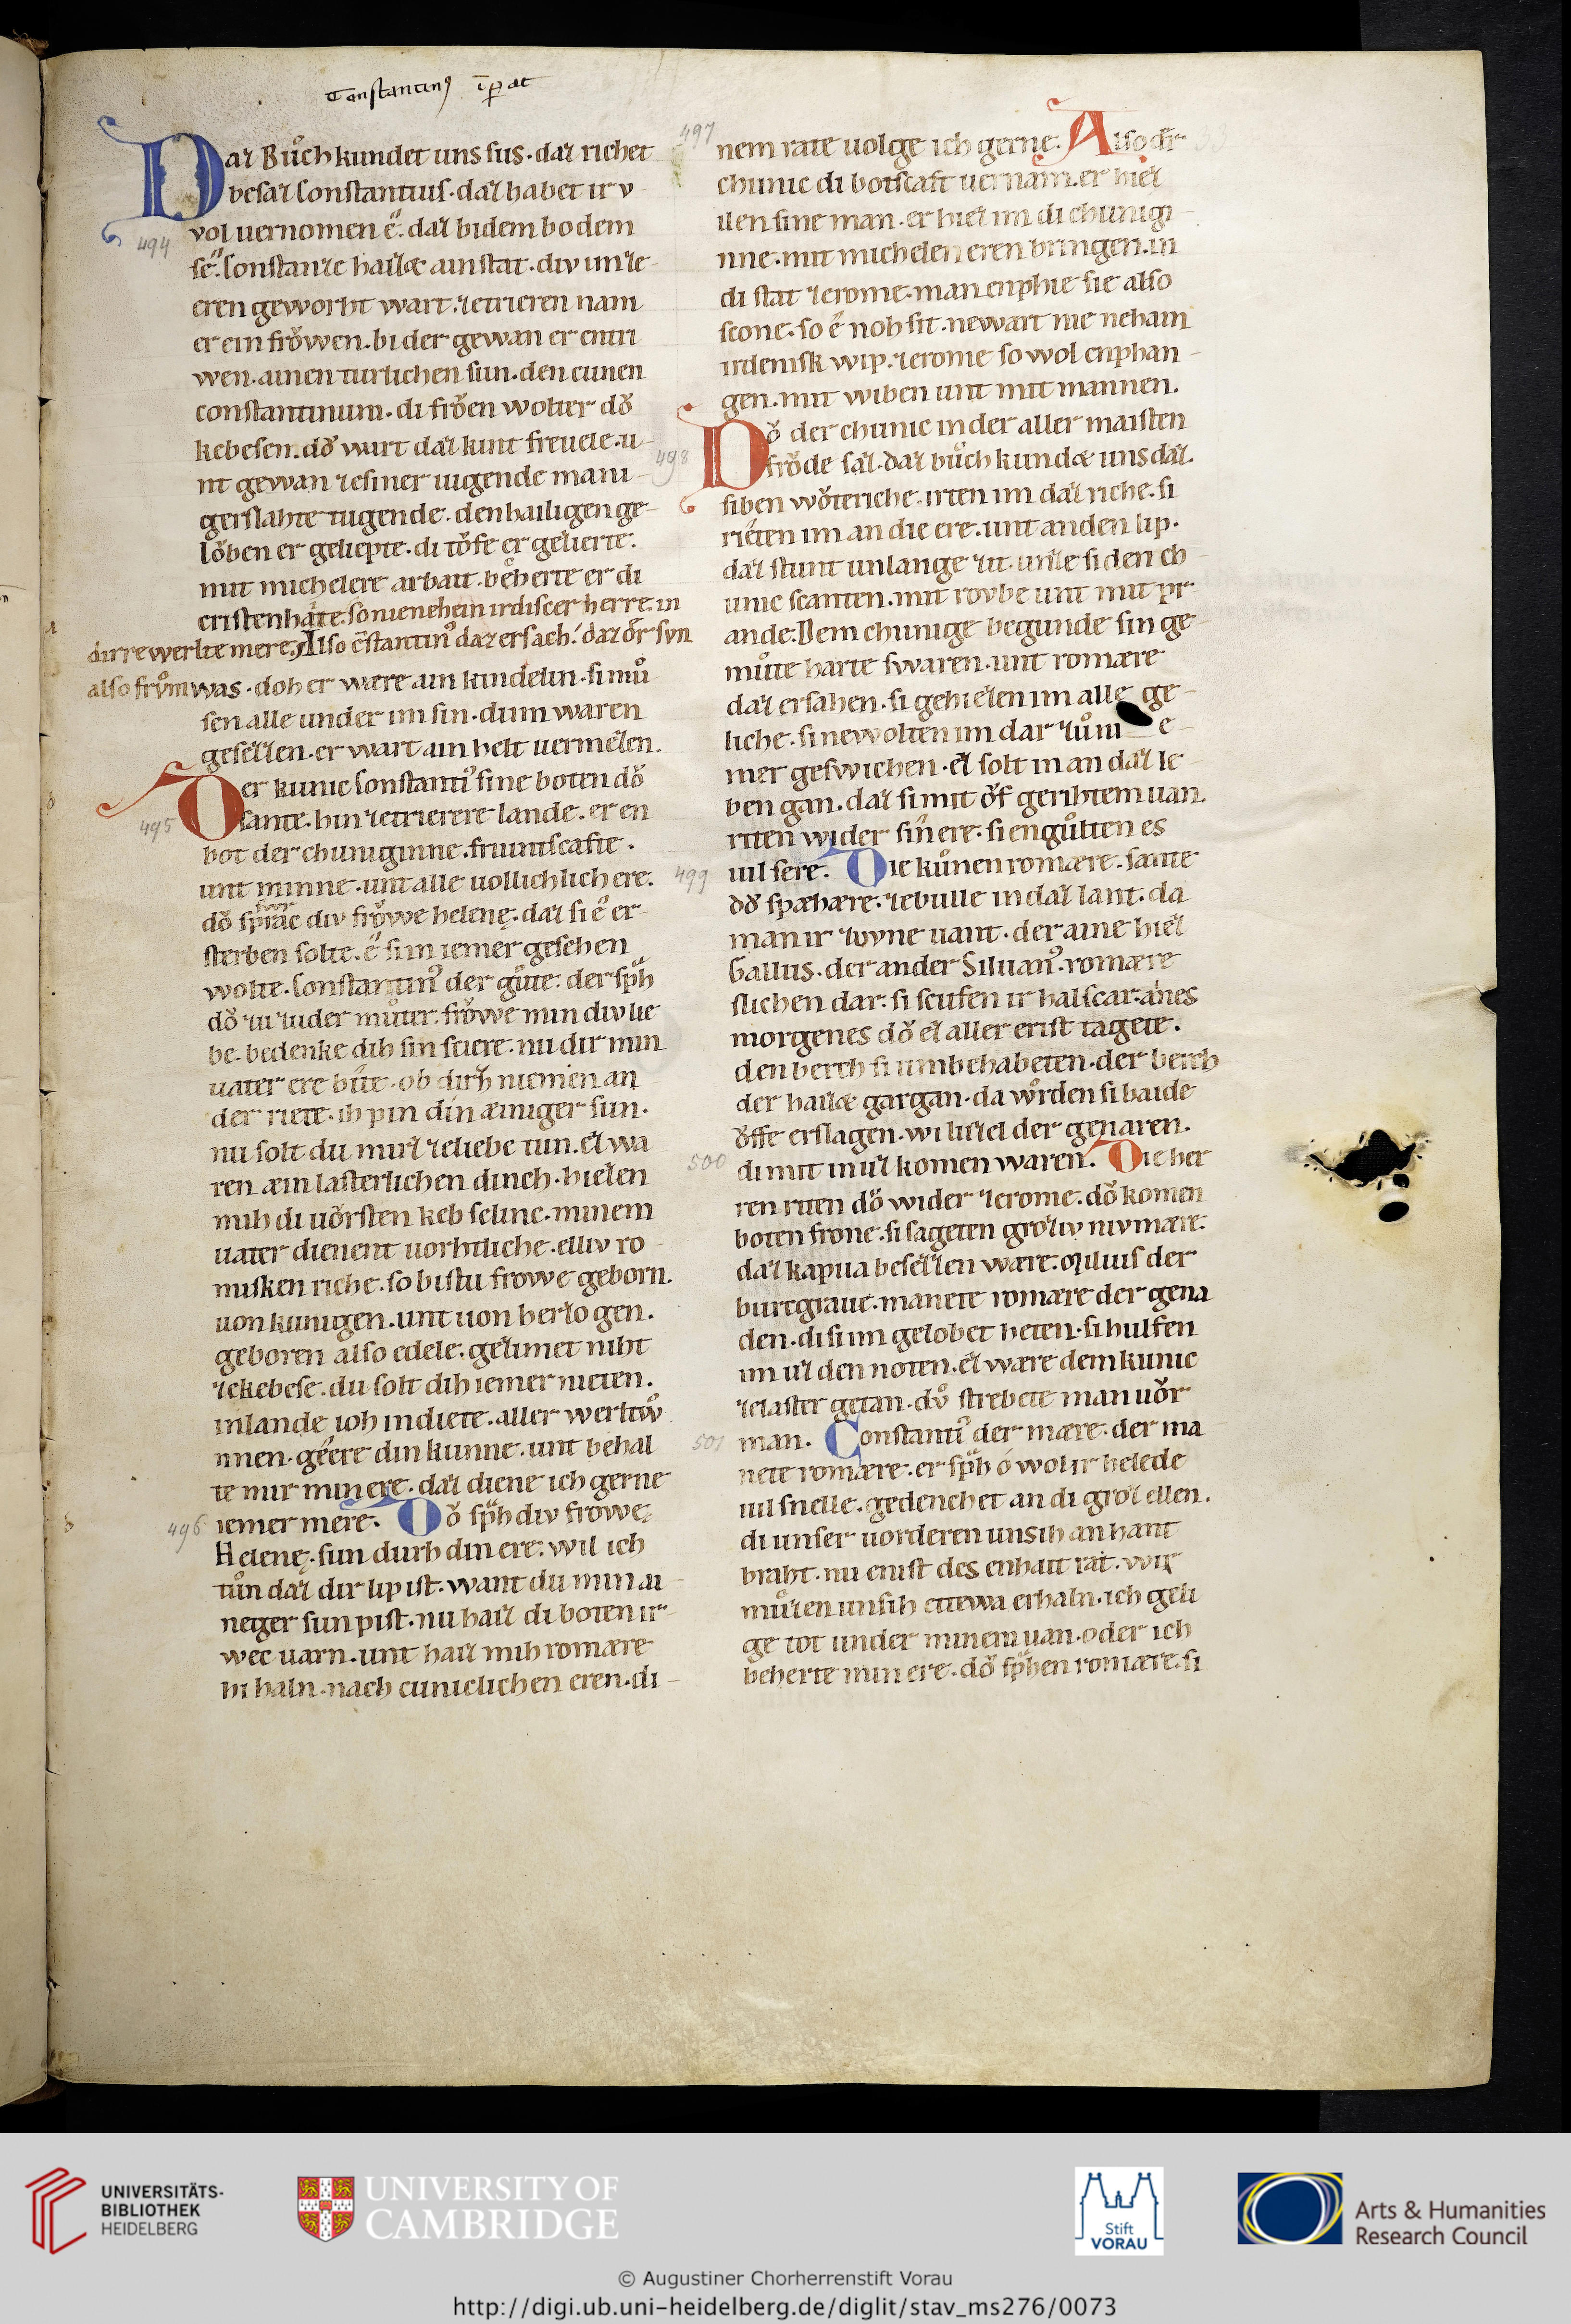 Constantinꝰ īpat
Daz Bůch kundet uns sus. daz richet
besaz Constantius. daz habet ir v
vol uernomen ê. daz bi dem bodem
sê. Constanze haizæ ain stat. div im ze
eren geworht wart. ze trieren nam
er ein frowen. bi der gewan er entri
wen. ainen turlichen sun. den cunen
constantinum. di frŏen wolter dŏ
kebesen. dŏ wart daz kint freuele. u-
nt gewan ze siner iugende mani-
gerslahte tugende. den hailigen ge-
lŏben er geliepte. di tŏfe er gezierte.
mit michelere arbait. beherte er di
cristenhaite. so nie nehein irdiscer herre. in
dirre werlte mere. Also cstantinꝰ daz er sach. daz dr svn
also frům was. doh er wære ain kindelin. si mů
sen alle under im sin. di im waren
gesezzen. er wart ain helt uermezen.
495
Der kunic Constantiꝰ sine boten dŏ
sante. hin ze trierere lande. er en
bot der chuniginne. friuntscafte.
unt minne. unt alle uollichlich ere.
dŏ sprac div frŏwe helenę. daz si ê er-
sterben solte. ê si in iemer gesehen
wolte. Constantinꝰ der gůte. der sph
dŏ zů zu der můter. frŏwe min div lie
be. bedenke dih sin sciere. nu dir min
uater ere bŭt. ob dirz niemen an
der riete. ih pin din æiniger sun.
nu solt du mirz ze liebe tun. ez wa
ren æin lasterlichen dinch. hiezen
mih di uŏrsten kebselinc. minem
uater dienent uorhtliche. elliv ro-
misken riche. so bistu frowe geborn.
uon kunigen. unt uon herzogen.
geboren also edele. gezimet niht
ze kebese. du solt dih iemer nieten.
in lande ioh in diete. aller werltwŏ
nnen. geêre din kunne. unt behal
te mir min ere. daz diene ich gerne
496 iemer mere. Dŏ sph div frowe
Helenę. sun durh din ere. wil ich
tůn daz dir lip ist. want du min ai-
neger sun pist. nu haiz di boten ir-
wec uarn. unt haiz mih romære
hi haln. nach cuniclichen eren. di-
497
nem rate uolge ich gerne. Also dr
chunic di botscaft uernam. er hiez
ilen sine man. er hiez im di chunigi-
nne. mit michelen eren bringen. in
di stat ze rome. man enphie sie also
scone. so ê noh sit. newart nie nehain
irdenisk wip. ze rome so wol enphan-
gen. mit wiben unt mit mannen.
498
Dŏ der chunic in der aller maisten
frŏde saz. daz bůch kundæ uns daz.
siben wŏteriche. irten im daz riche. si
riêten im an die ere. unt an den lip.
daz stunt unlange zit. unze si den ch
unic scanten. mit rovbe unt mit pr
ande. Dem chunige begunde sin ge-
můte harte swaren. unt romære
daz ersahen. si gehiezen im alle ge-
liche. si newolten im dar zů ni e-
mer geswichen. ez solt in an daz le-
ben gan. daz si mit ŏf gerihtem uan.
riten wider sin ere. si engůlten es
499 uil sere. Die kůnen romære. sante
dŏ spæhære. ze bulle in daz lant. da
man ir zwyne uant. der aine hiez
Gallus. der ander Siluanꝰ. romære
slichen dar. si scufen ir halscar. ânes
morgenes dŏ ez aller erist tagete.
den berch si umbehabeten. der berch
der haizæ gargan. da wrden si baide
ŏffe erslagen. wi luzzel der genaren.
500 di mit in uz komen waren. Die her
ren riten dŏ wider ze rome. dŏ komen
boten frone. si sageten groziv nivmære.
daz kapua besezzen ware. Miluis der
burcgraue. manete romære der gena
den. di si im gelobet heten. si hulfen
im uz den noten. ez ware dem kunic
ze laster getan. dŏ strebete man uŏr
501 man. Constantiꝰ der mære. der ma
nete romære. er sph ó wol ir helede
uil snelle. gedenchet an di groz ellen.
di unser uorderen unsih an hant
braht. nu enist des enhait rat. wir
můzen unsih ettewa erhaln. ich geli
ge tot under minem uan. oder ich
beherte min ere. dŏ sphen romære. si
UNIVERSITÄTS-
BIBLIOTHEK
HEIDELBERG
UNIVERSITY OF
CAMBRIDGE
Stift
VORAU
Arts & Humanities
Research Council
© Augustiner Chorherrenstift Vorau
http://digi.ub.uni-heidelberg.de/diglit/stav_ms276/0073